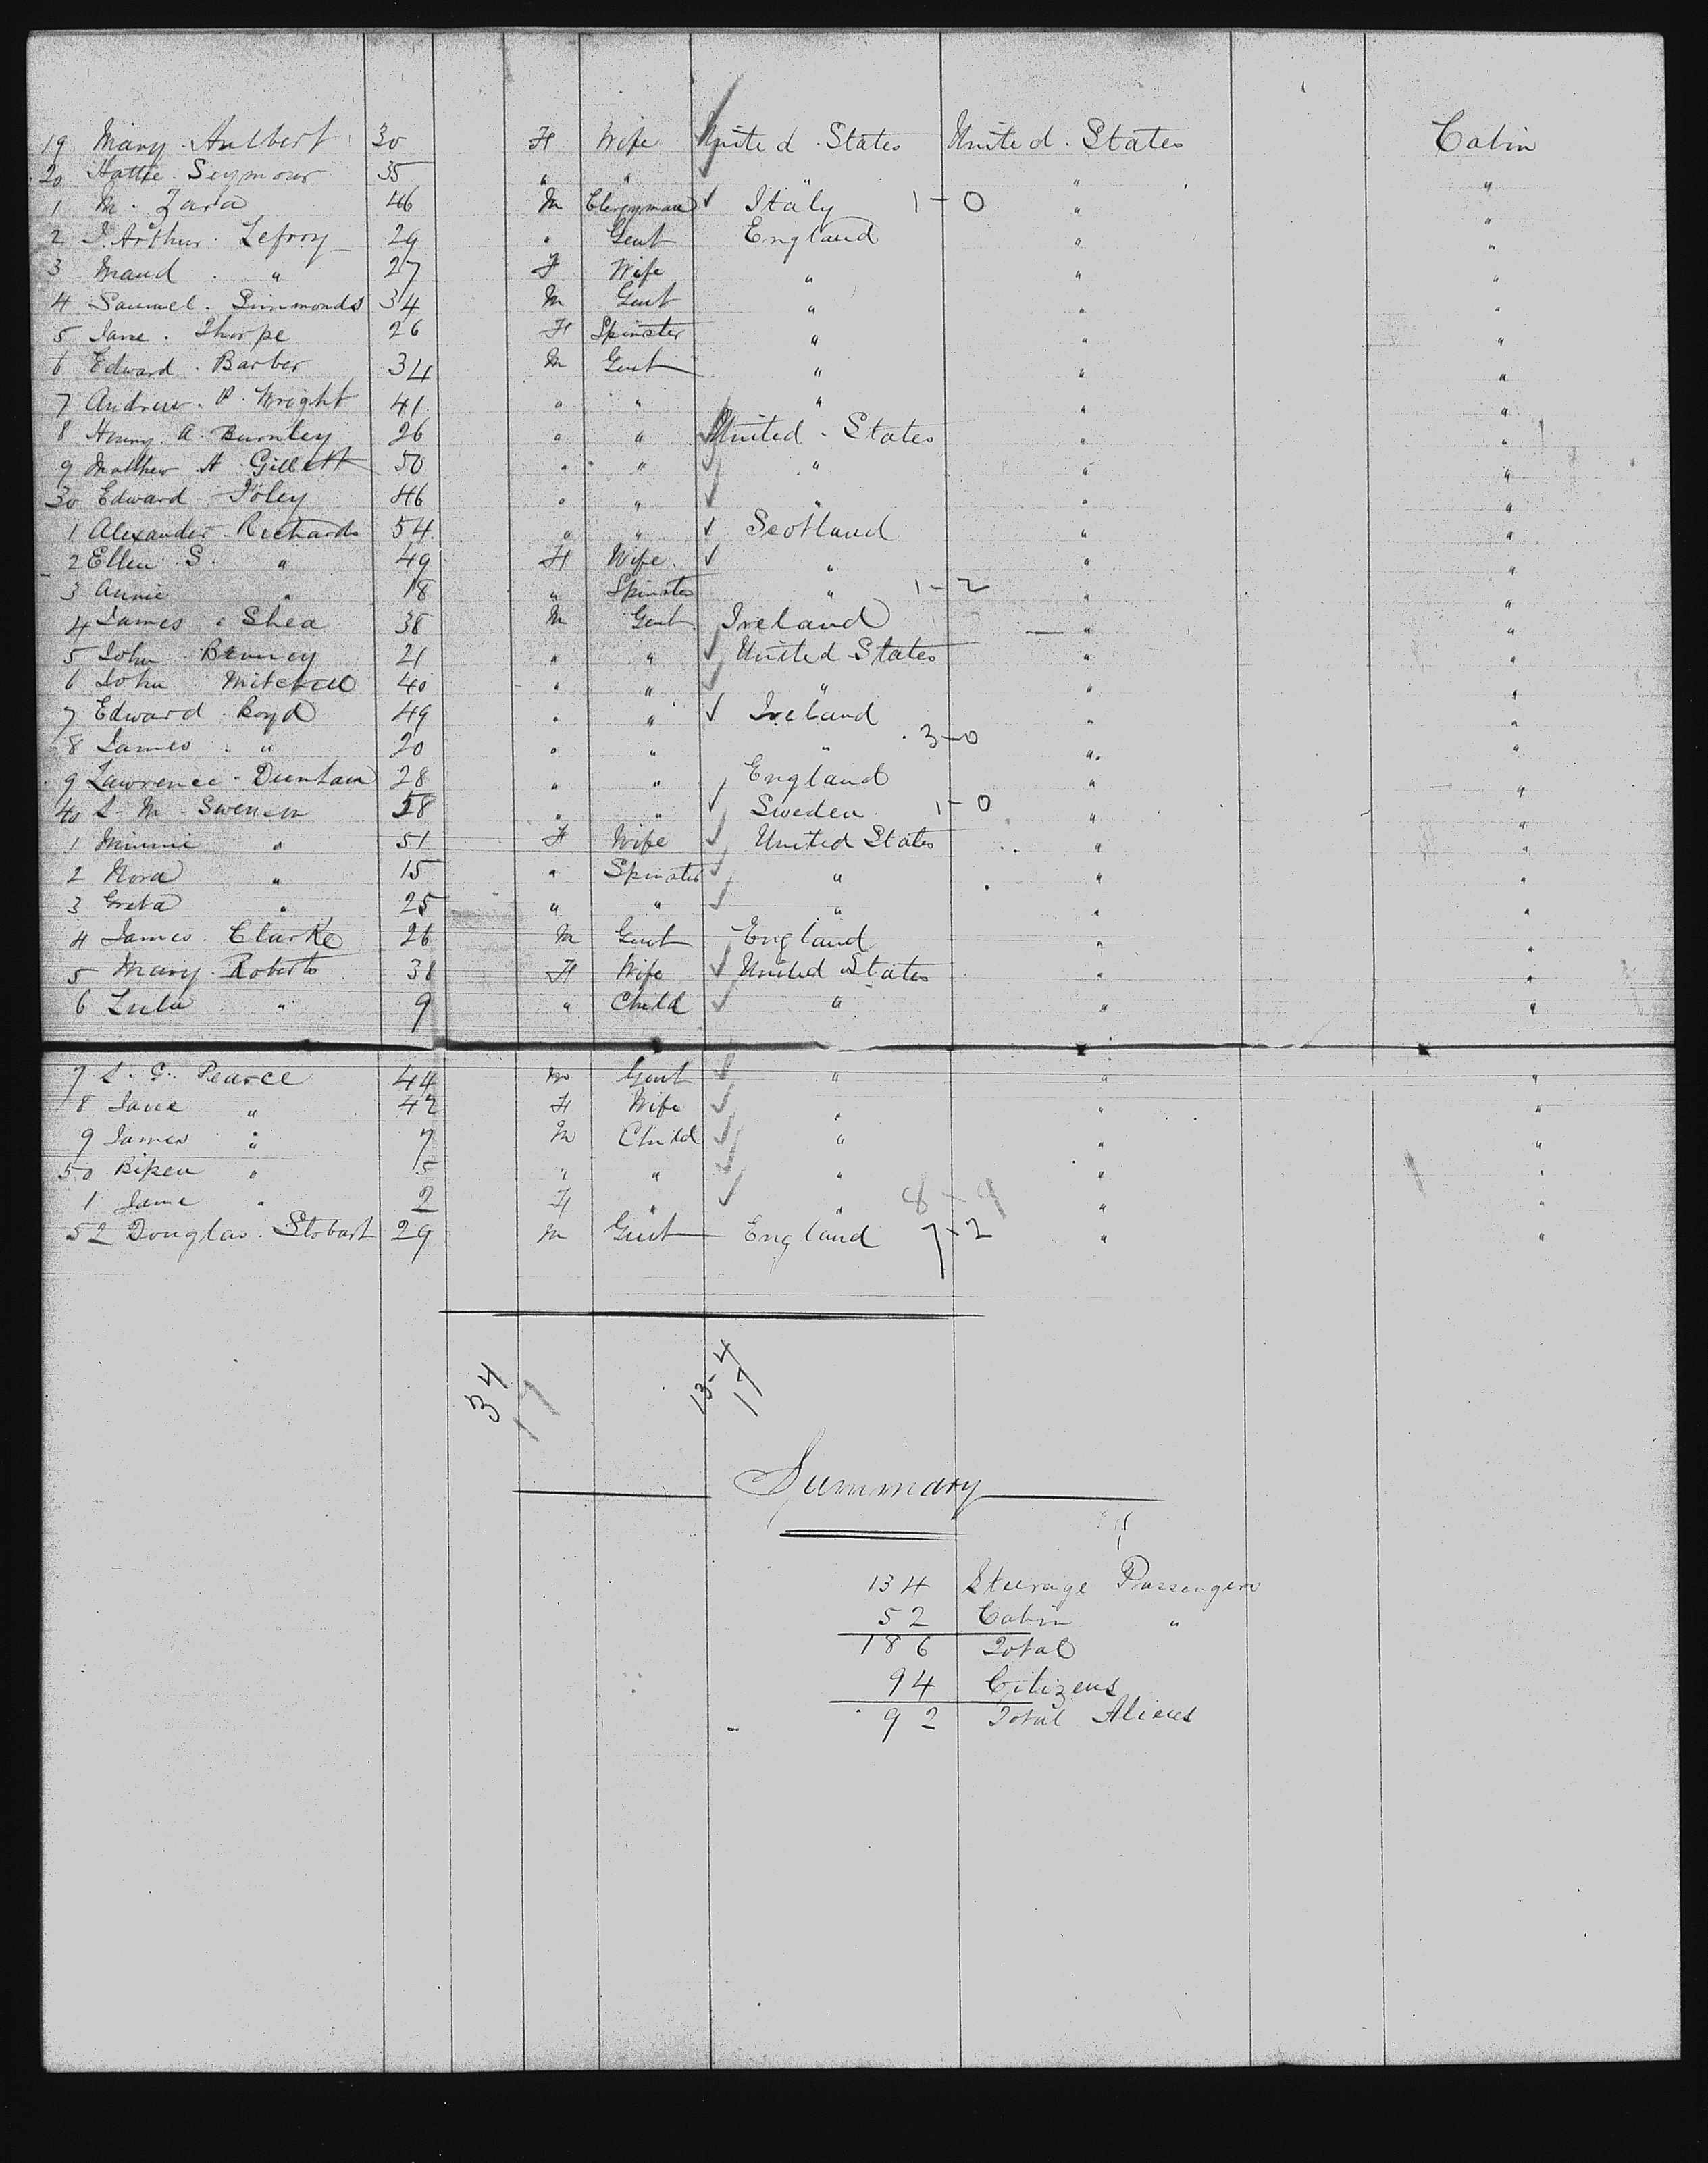 19 Mary Hulbert 30 F Wife United States United States Cabin
20 Hattie Seymour 35 " " " " "
1 M. Zara 46 M Clergyman Italy 1-0 " "
2 J. Arthur Lefroy 29 " Gent England " "
3 Maud " 27 F Wife " " "
4 Samuel Simmonds 34 M Gent " " "
5 Jane Thorpe 26 F Spinster " " "
6 Edward Barber 34 M Gent " " "
7 Andrew P. Wright 41 " " " " "
8 Henry A. Burnley 26 " " United States " "
9 Mathew H Gillett 50 " " " " "
30 Edward Foley 46 " " " " "
1 Alexander Richards 54 " " Scotland " "
2 Ellen S. " 49 F Wife " " "
3 Annie " 18 " Spinster " 1-2 " "
4 James Shea 38 M Gent Ireland " "
5 John 21 " " United States " "
6 John Mitchell 40 " " " " "
7 Edward Boyd 49 " " Ireland " "
8 James " 20 " " " 3-0 " "
9 Lawrence Dunham 28 " " England " "
40 S. M. Swenson 58 " " Sweden 1-0 " "
1 Minnie " 51 F Wife United States " "
2 Nora " 15 " Spinster " " "
3 Greta " 25 " " " " "
4 James Clarke 26 M Gent England " "
5 Mary Roberts 38 F Wife United States " "
6 Lula " 9 " Child " " "
7 S. G. Pearce 44 M Gent " " "
8 Jane " 42 F Wife " " "
9 James " 7 M Child " " "
50 " 5 " " " " "
1 Jane " 2 F " " 8-9 " "
52 Douglas Stobart 29 M Gent England 7-2 " "
34 13-4
17 17
Summary
134 Steerage Passengers
52 Cabin "
186 Total
94 Citizens
92 Total Aliens